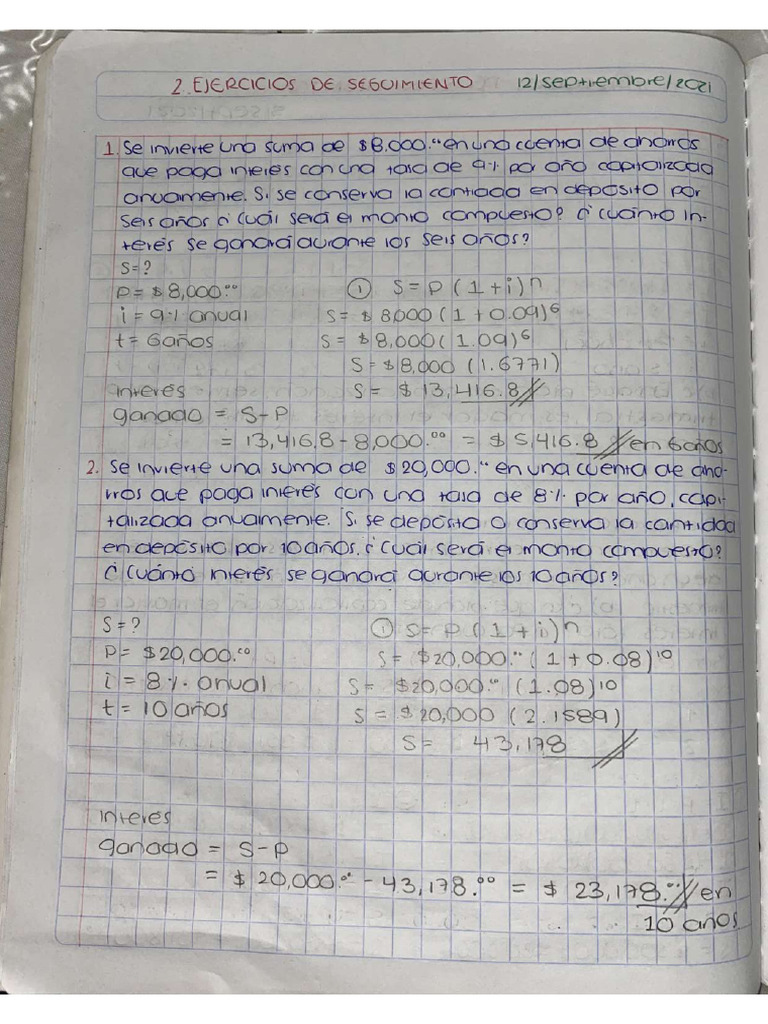 2. EJERCICIOS DE SEGUIMIENTO 12/septiembre/2021
1. Se invierte una suma de $8,000.⁰⁰ en una cuenta de ahorros
que paga interés con una tasa de 9% por año capitalizada
anuamente. Si se conserva la cantidad en depósito por
seis años ¿cuál será el monto compuesto? ¿cuánto in-
terés se ganará durante los seis años?
S=?
P= $8,000.⁰⁰ ① S= P (1+i)ⁿ
i = 9% anual S= $ 8,000 (1+0.09)⁶
t= 6 años S= $8,000 (1.09)⁶
S= $8,000 (1.6771)
interés S= $ 13,416.8
ganado = S-P
= 13,416.8 - 8,000.⁰⁰ = $ 5,416.8 en 6 años
2. Se invierte una suma de $20,000.⁰⁰ en una cuenta de aho-
rros que paga interés con una tasa de 8% por año, capi-
talizada anuamente. Si se depósita o conserva la cantidad
en depósito por 10 años. ¿Cuál será el monto compuesto?
¿Cuánto interés se ganará durante los 10 años?
S=? ① S= P (1+i)ⁿ
P= $20,000.⁰⁰ S= $20,000.⁰⁰ (1+0.08)¹⁰
i = 8% anual S= $20,000.⁰⁰ (1.08)¹⁰
t= 10 años S = $20,000 (2.1589)
S= 43,178
interés
ganado = S-P
= $ 20,000.⁰⁰ - 43,178.⁰⁰ = $ 23,178.⁰⁰ en
10 años